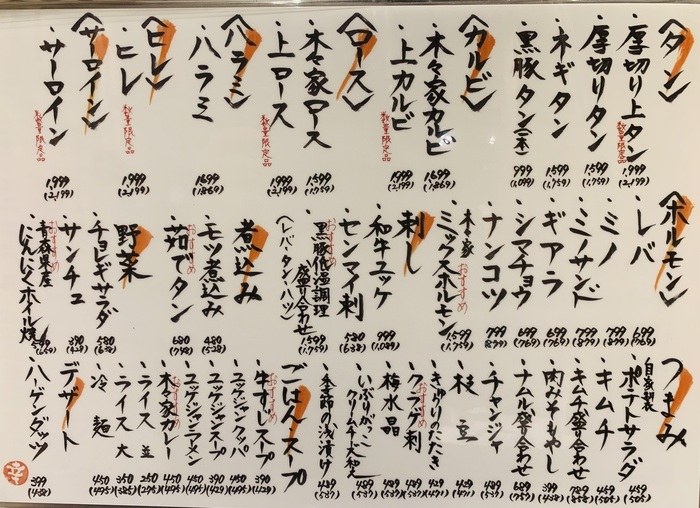 〈タン〉
・厚切り上タン 数量限定品 1,999 (2,199)
・厚切りタン 1,599 (1,759)
・ネギタン 1,599 (1,759)
・黒豚タン(一本) 999 (1,099)
〈カルビ〉
・木々家カルビ 1,699 (1,869)
・上カルビ 数量限定品 1,999 (2,199)
〈ロース〉
・木々家ロース 1,599 (1,759)
・上ロース 数量限定品 1,999 (2,199)
〈ハラミ〉
・ハラミ 1,699 (1,869)
〈ヒレ〉
・ヒレ 数量限定品 1,999 (2,199)
〈サーロイン〉
・サーロイン 数量限定品 1,999 (2,199)
〈ホルモン〉
・レバー 699 (769)
・ミノ 799 (879)
・ミノサンド 799 (879)
・ギアラ 699 (769)
・シマチョウ 699 (769)
・ナンコツ 799 (879)
・木々家ミックスホルモン おすすめ 1,599 (1,759)
刺し
・和牛ユッケ 999 (1,099)
・センマイ刺 580 (638)
・黒豚低温調理盛り合わせ おすすめ 1,599 (1,759)
(レバ・タン・ハツ)
煮込み
・モツ煮込み 480 (528)
・茹でタン おすすめ 680 (748)
野菜
・チョレギサラダ 580 (638)
・サンチュ 390 (429)
・青森県産にんにくホイル焼 おすすめ 599 (659)
つまみ
・自家製ポテトサラダ 459 (505)
・キムチ 459 (505)
・キムチ盛り合わせ 789 (868)
・肉みそもやし 399 (438)
・ナムル盛り合わせ 689 (757)
・チャンジャ 489 (537)
・枝豆 429 (471)
・きゅうりのたたき 429 (471)
・クラゲ刺 おすすめ 489 (537)
・梅水晶 489 (537)
・いぶりがっこクリームチーズ和え 489 (537)
・季節の浅漬け 489 (537)
ごはん・スープ
・牛すじスープ おすすめ 390 (429)
・ユッケジャンクッパ 450 (495)
・ユッケジャンスープ 390 (429)
・ユッケジャンラーメン 450 (495)
・木々家カレー おすすめ 450 (495)
・ライス 並 250 (275)
・ライス 大 350 (385)
・冷麺 450 (495)
デザート
・ハーゲンダッツ 399 (438)